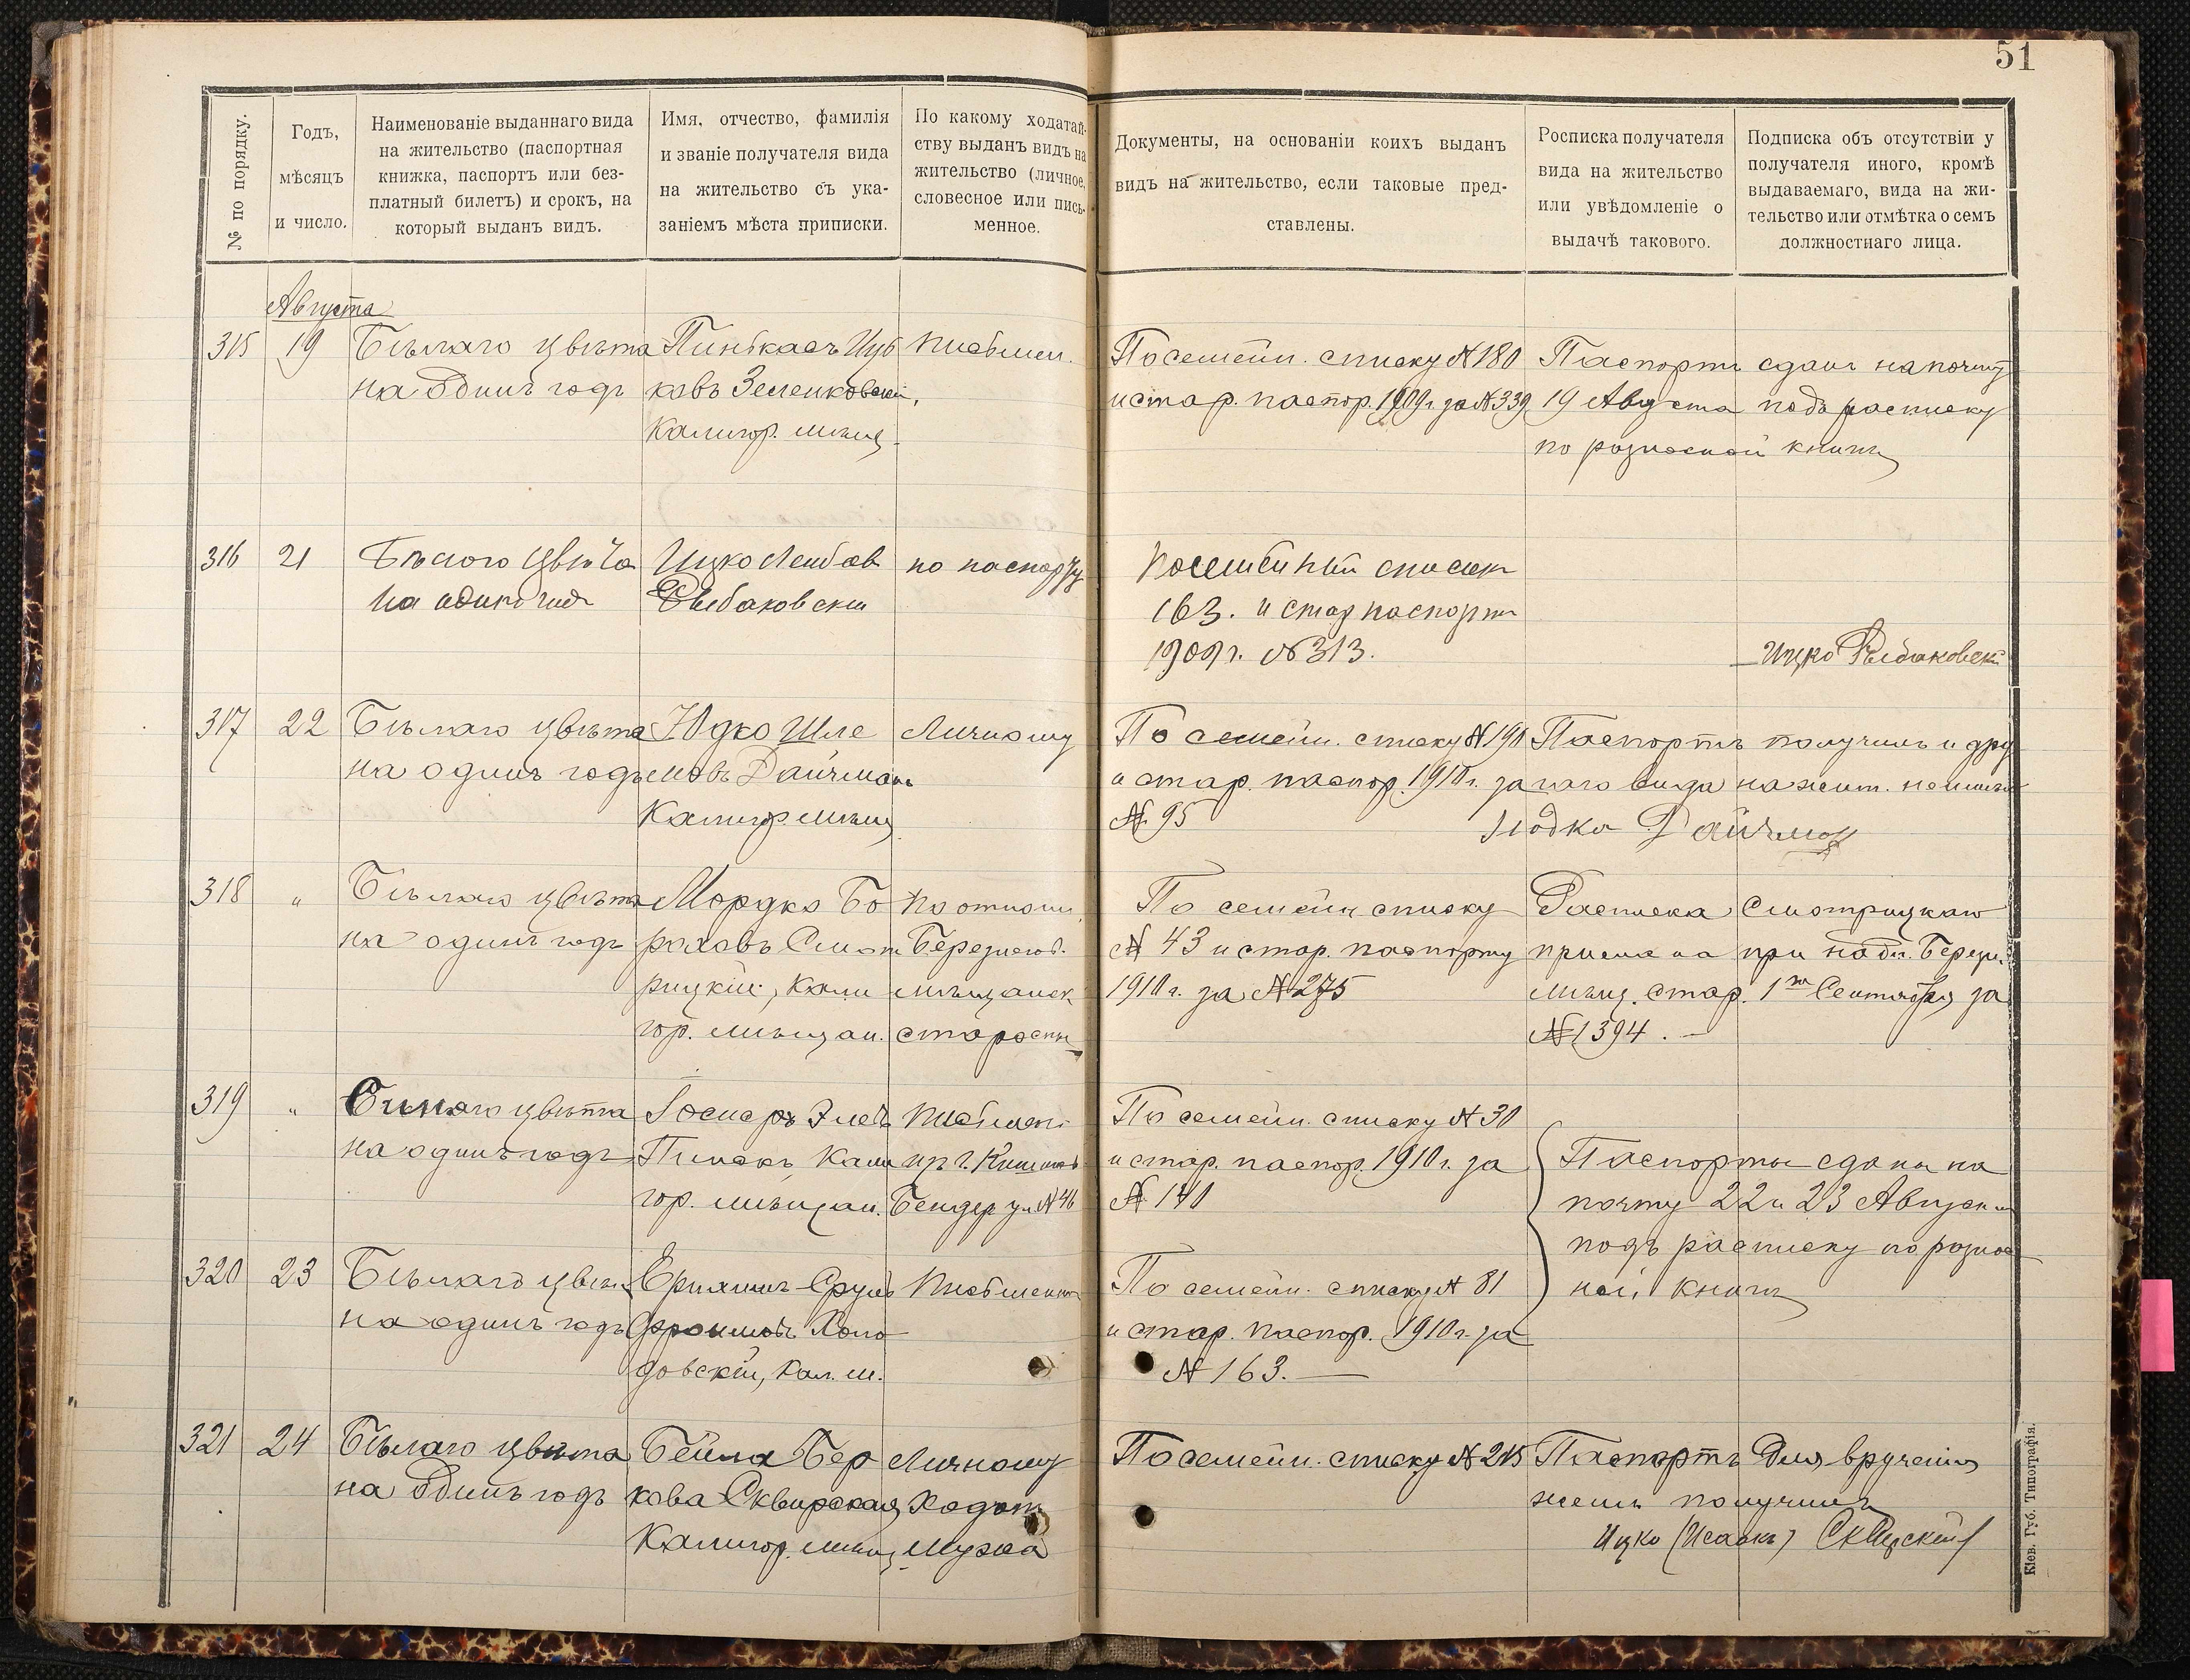 51
№ по порядку.
Годъ,
мѣсяцъ
и число.
Наименованіе выданнаго вида
на жительство (паспортная
книжка, паспортъ или без-
платный билетъ) и срокъ, на
который выданъ видъ.
Имя, отчество, фамилія
и званіе получателя вида
на жительство съ ука-
заніемъ мѣста приписки.
По какому ходатай-
ству выданъ видъ на
жительство (личное,
словесное или пись-
менное.
Документы, на основаніи коихъ выданъ
видъ на жительство, если таковые пред-
ставлены.
Росписка получателя
вида на жительство
или увѣдомленіе о
выдачѣ такового.
Подписка объ отсутствіи у
получателя иного, кромѣ
выдаваемаго, вида на жи-
тельство или отмѣтка о семъ
должностнаго лица.
Августа
315
19
Бѣлаго цвѣта
на одинъ годъ
Пинькасъ Иць
ковъ Зеленковскій,
Калигор. мѣщ.
Письмен.
По семейн. списку № 180
и стар. паспор. 1909 г. за № 339
Паспортъ сданъ на почту
19 Августа подъ расписку
по разносной книгѣ
316
21
Бѣлого цвѣта
на одинъ годъ
Ицко Лейбов
Рыбаковскій
по паспорту
Посемейный списокъ
163. и стар паспортъ
1909 г. № 313.
Ицко Рыбаковскій
317
22
Бѣлаго цвѣта
на одинъ годъ
Юдко Шле
мовъ Райчман
Калигор. мѣщ
Личному
По семейн. списку № 190
и стар. паспор. 1910 г. за
№ 95
Паспортъ получилъ и дру
гаго вида на жит. неимѣю
Юдко Райчман
318
"
Бѣлаго цвѣта
на одинъ годъ
Мордко Бо
роховъ Смот
рицкій, Кали
гор. мѣщан.
По отнош.
Березнегов.
мѣщанск
старосты
По семейн списку
№ 43 и стар. паспорту
1910 г. за № 275
Расписка Смотрицкаго
прислана при надп. Березн.
мѣщ. стар. 1го Сентября за
№ 1394. —
319
"
Бѣлаго цвѣта
на одинъ годъ
Пинскъ, Кали
гор. мѣщан.
Письмен.
из г. Кишинев
Бендер ул № 46
По семейн. списку № 30
и стар. паспор. 1910 г. за
№ 140
Паспорты сданы на
почту 22 и 23 Августа
подъ расписку по разнос
ной книгѣ
320
23
Бѣлаго цвѣта
на одинъ годъ
Сруль
Фроимовъ Холо
довскій, Кал. м.
Письменном
По семейн. списку № 81
и стар. паспор. 1910 г. за
№ 163. —
321
24
Бѣлаго цвѣта
на одинъ годъ
Бейла Бер
кова Сквирская,
Калигор. мѣщ.
Личному
Ходат.
Мужа
По семейн. списку № 215
Паспортъ для врученія
женѣ получилъ
Ицко (Исаакъ) Сквирскій
Кіев. Губ. Типографія.